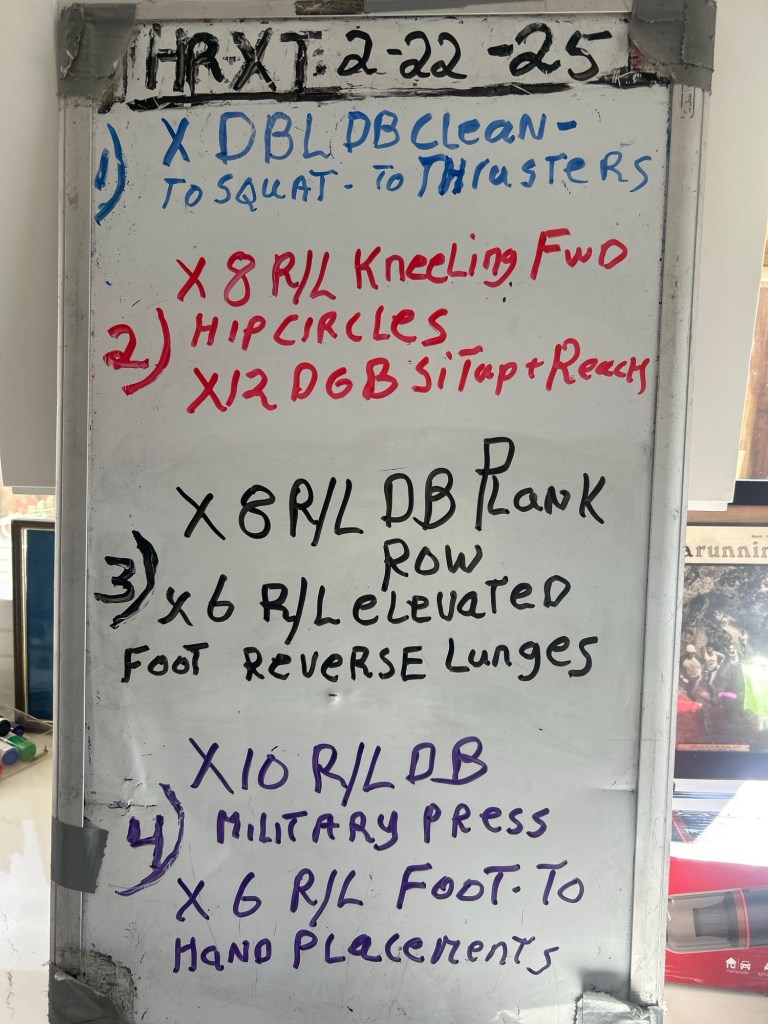 HR-XT: 2-22-25
1) X DBL DB CLEAN-
TO SQUAT - TO THRUSTERS
X 8 R/L KneeLing FWD
2) HIP CIRCLES
X12 DGB SiTup + Reach
X 8 R/L DB PLANK
ROW
3) X 6 R/L eLEVATED
FOOT REVERSE Lunges
X10 R/L DB
4) MILITARY PRESS
X 6 R/L FOOT-TO
HAND PLACEMENTS
arunnin